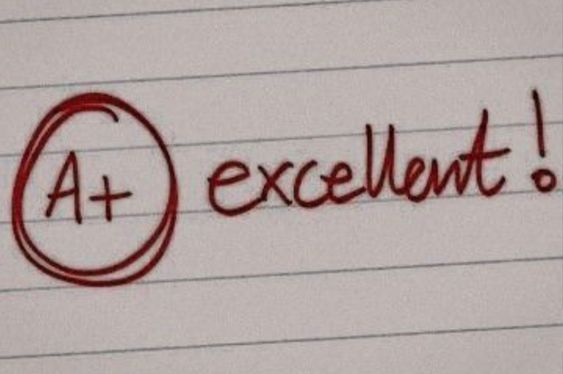 A+ excellent!